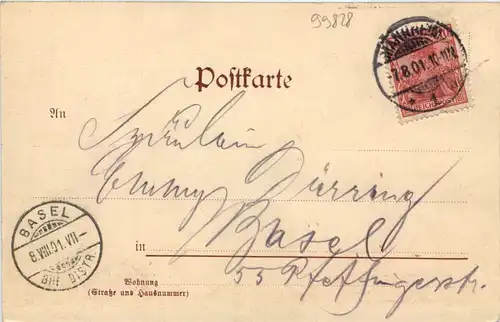 99828
MANNHEIM
7.8.01.
1
REICHSPOST
Postkarte
An
Fräulein
Emmy Dürring
Basel
in
55 Pfeffingerstr.
BASEL
8.VIII.01.VII-
BRF. DISTR.
Wohnung
(Straße und Hausnummer)